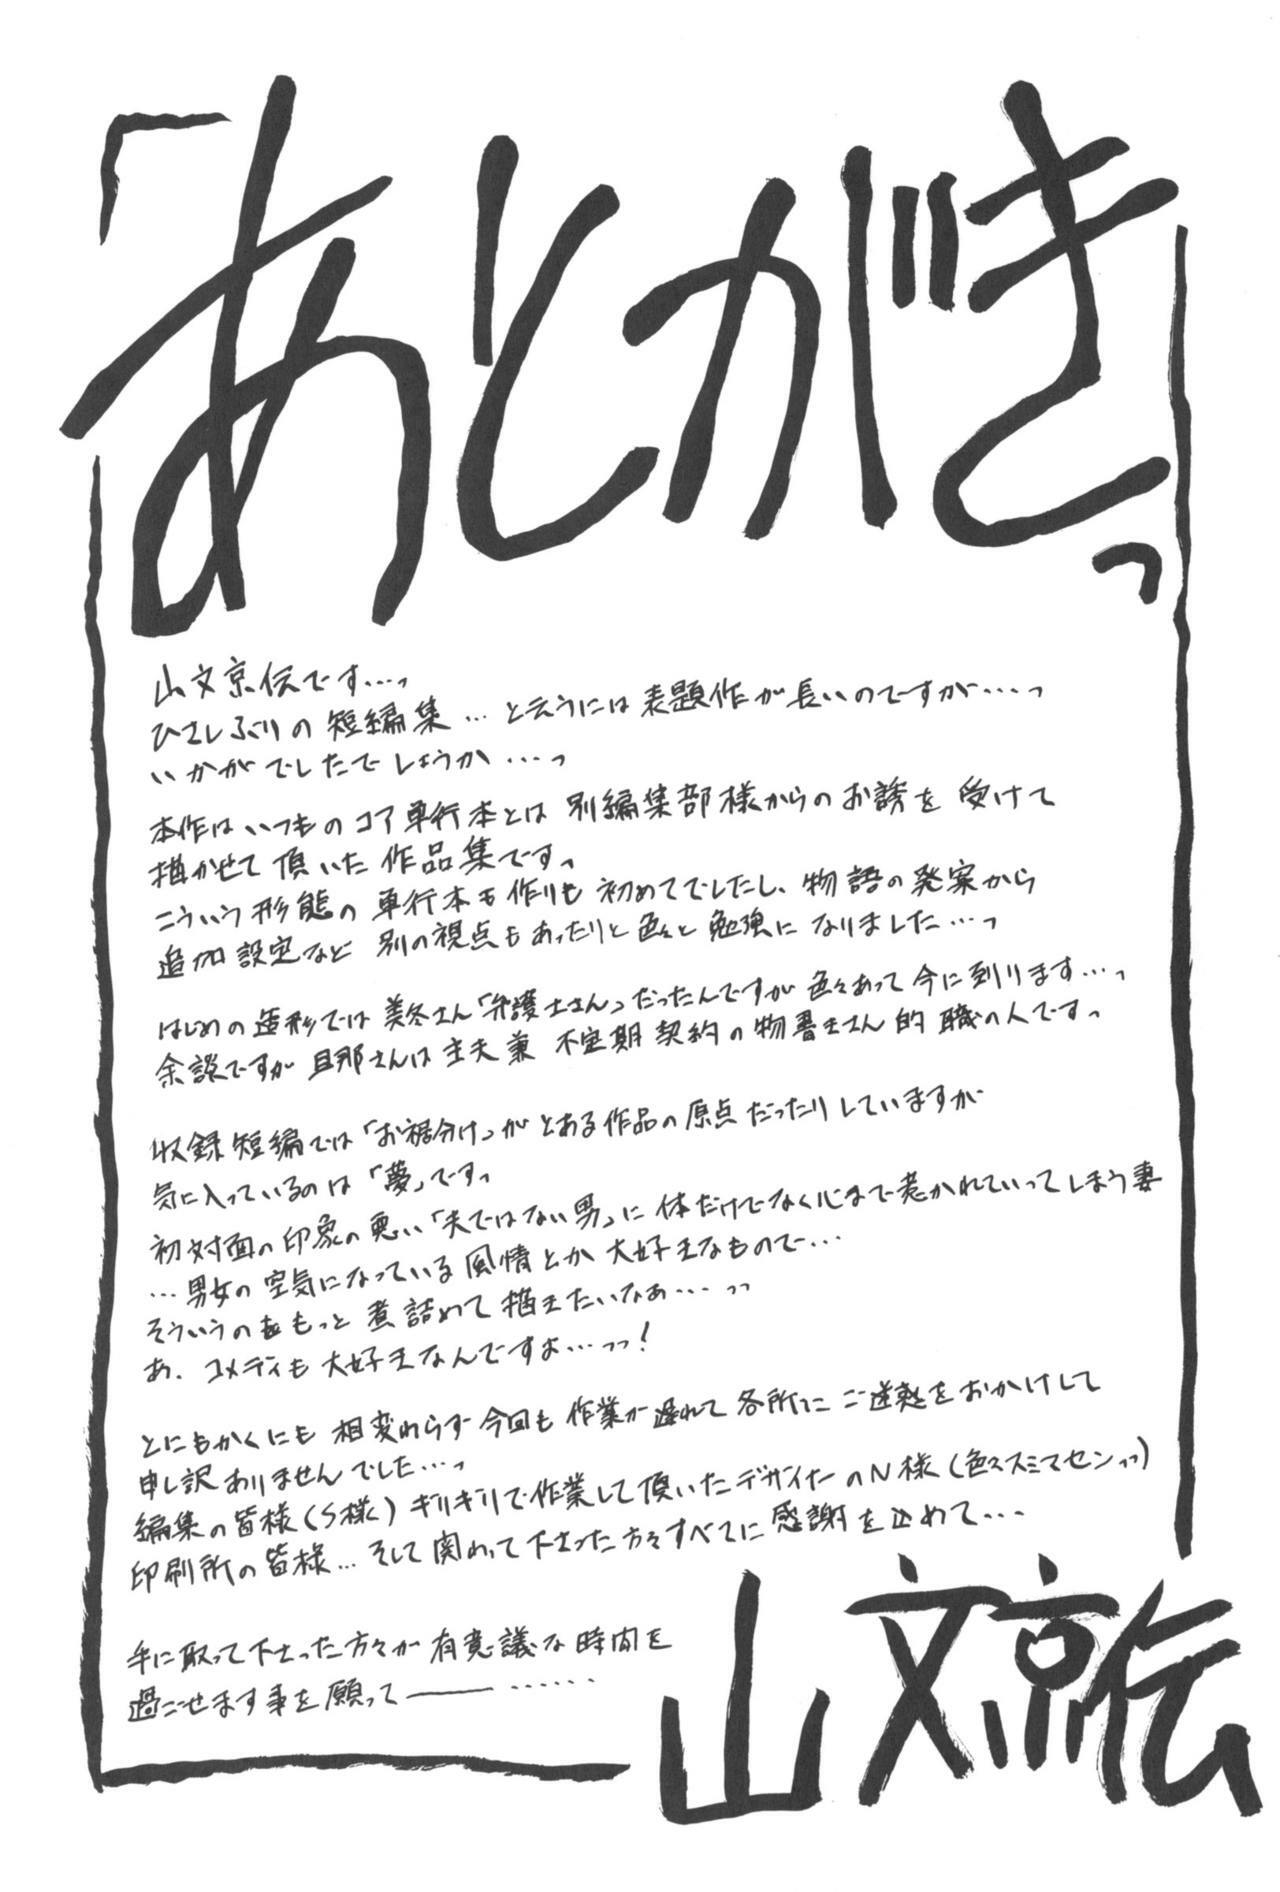 「あとがき」っ
山文京伝です…っ
ひさしぶりの短編集…と云うには表題作が長いのですが…っ
いかがでしたでしょうか…っ
本作はいつものコア単行本とは別編集部様からのお誘を受けて
描かせて頂いた作品集ですっ
こういう形態の単行本も作りも初めてでしたし、物語の発案から
追加設定など別の視点もあったりと色々と勉強になりました…っ
はじめの造形では美冬さん「弁護士さん」だったんですが色々あって今に到ります…っ
余談ですが旦那さんは主夫兼不定期契約の物書きさん的職の人ですっ
収録短編では「お裾分け」がとある作品の原点だったりしていますが
気に入っているのは「夢」ですっ
初対面の印象の悪い「夫ではない男」に体だけでなく心まで惹かれていってしまう妻
…男女の空気になっている風情とか大好きなもので…
そういうのをもっと煮詰めて描きたいなあ…っっ
あ、コメディも大好きなんですよ…っっ！
とにもかくにも相変わらず今回も作業が遅れて各所にご迷惑をおかけして
申し訳ありませんでした…っ
編集の皆様(S様)ギリギリで作業して頂いたデザイナーのN様(色々スミマセンっっ)
印刷所の皆様…そして関わって下さった方々すべてに感謝を込めて…
手に取って下さった方々が有意議な時間を
過ごせます事を願って――……
山文京伝